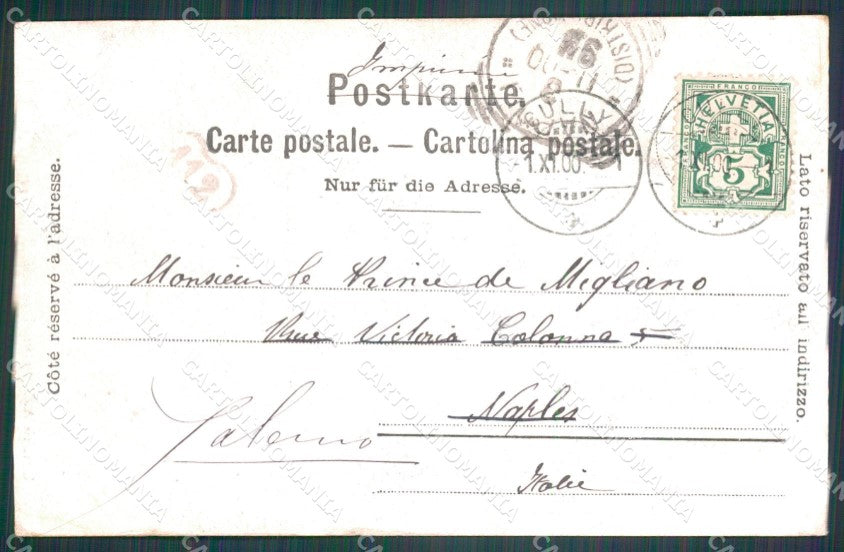 Imprimé
Postkarte.
Carte postale. — Cartolina postale.
Nur für die Adresse.
Côté réservé à l'adresse.
Lato riservato all indirizzo.
FRANCO
HELVETIA
5
PULLY
1.XI.00. 1
1.XI.00
112
(DISTRIBUZIONE)
Monsieur le Prince de Migliano
Rue Victoria Colonna 5
Naples
Palerno
Italie
CARTOLINOMANIA